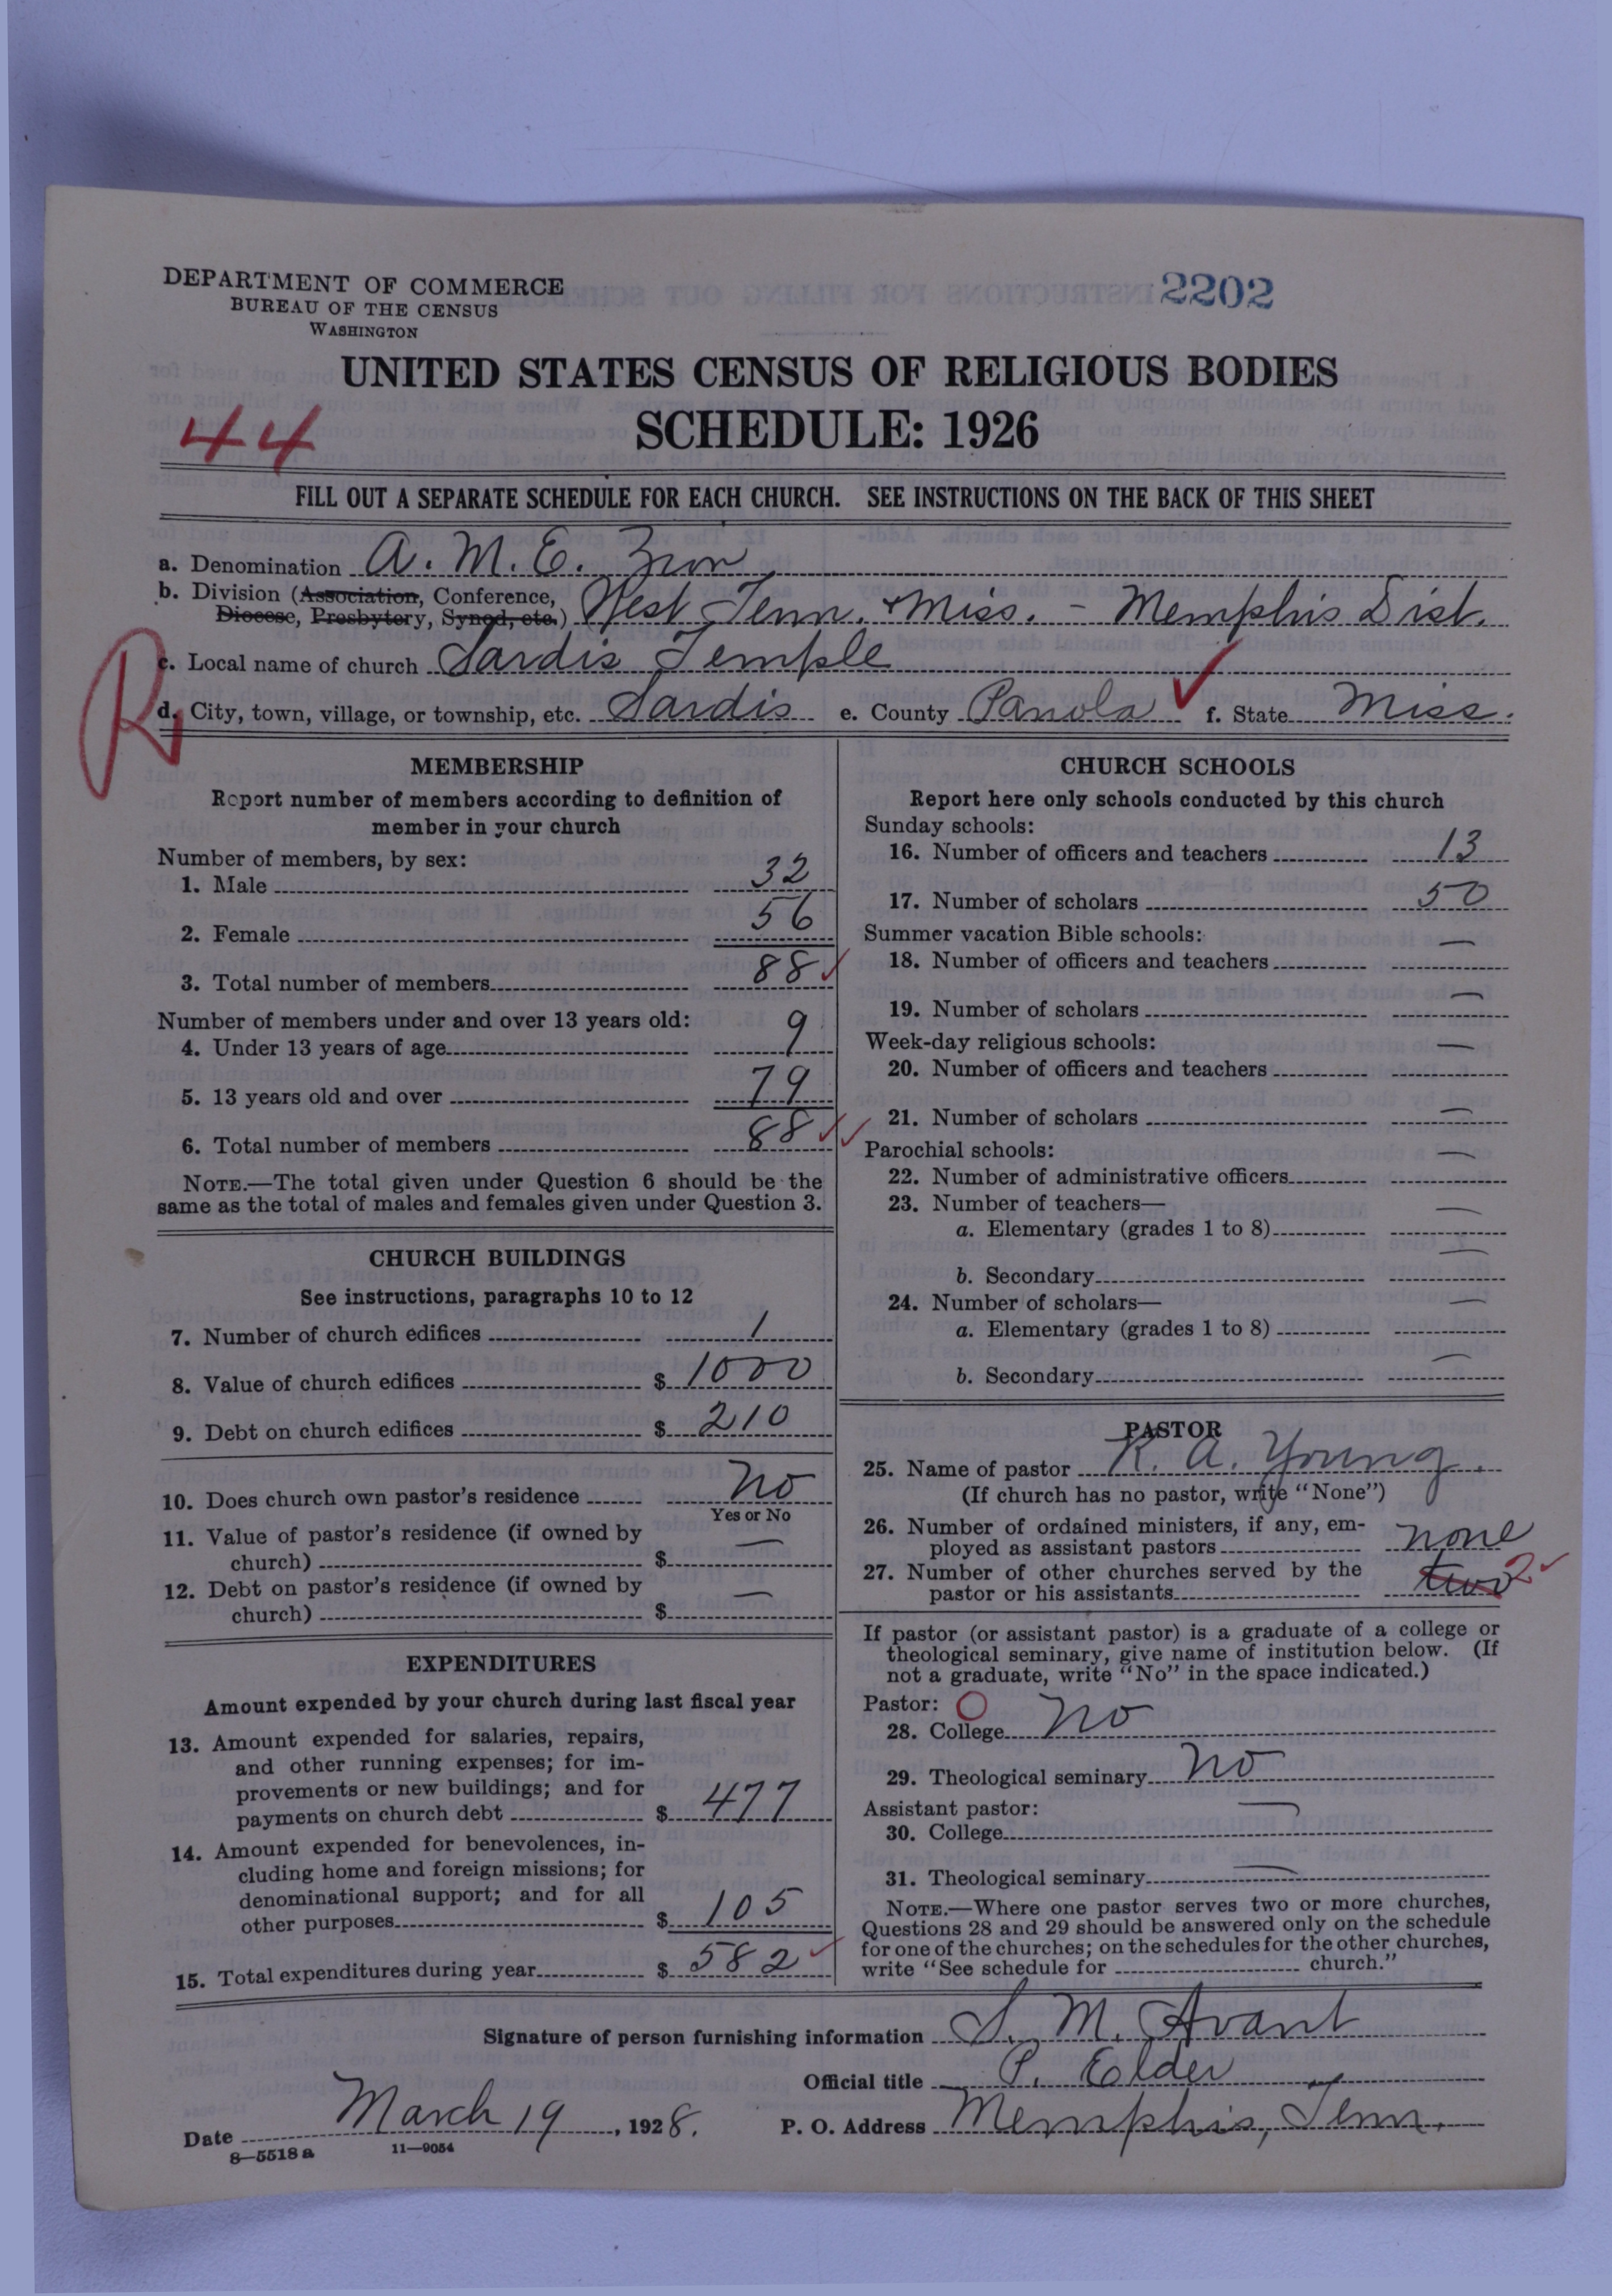 DEPARTMENT OF COMMERCE
BUREAU OF THE CENSUS
WASHINGTON
2202
UNITED STATES CENSUS OF RELIGIOUS BODIES
SCHEDULE: 1926
44
FILL OUT A SEPARATE SCHEDULE FOR EACH CHURCH. SEE INSTRUCTIONS ON THE BACK OF THIS SHEET
a. Denomination A. M. E. Zion
b. Division (Association, Conference,
Diocese, Presbytery, Synod, etc.) West Tenn. & Miss. - Memphis Dist.
R
c. Local name of church Sardis Temple
d. City, town, village, or township, etc. Sardis e. County Panola f. State Miss.
MEMBERSHIP
Report number of members according to definition of
member in your church
Number of members, by sex:
1. Male 32
2. Female 56
3. Total number of members 88
Number of members under and over 13 years old:
4. Under 13 years of age 9
5. 13 years old and over 79
6. Total number of members 88
NOTE.—The total given under Question 6 should be the
same as the total of males and females given under Question 3.
CHURCH BUILDINGS
See instructions, paragraphs 10 to 12
7. Number of church edifices 1
8. Value of church edifices $ 1000
9. Debt on church edifices $ 210
10. Does church own pastor's residence No
Yes or No
11. Value of pastor's residence (if owned by
church) $ —
12. Debt on pastor's residence (if owned by
church) $ —
EXPENDITURES
Amount expended by your church during last fiscal year
13. Amount expended for salaries, repairs,
and other running expenses; for im-
provements or new buildings; and for
payments on church debt $ 477
14. Amount expended for benevolences, in-
cluding home and foreign missions; for
denominational support; and for all
other purposes $ 105
15. Total expenditures during year $ 582
CHURCH SCHOOLS
Report here only schools conducted by this church
Sunday schools:
16. Number of officers and teachers 13
17. Number of scholars 50
Summer vacation Bible schools:
18. Number of officers and teachers —
19. Number of scholars —
Week-day religious schools:
20. Number of officers and teachers —
21. Number of scholars —
Parochial schools:
22. Number of administrative officers —
23. Number of teachers—
a. Elementary (grades 1 to 8) —
b. Secondary —
24. Number of scholars—
a. Elementary (grades 1 to 8) —
b. Secondary —
PASTOR
25. Name of pastor R. A. Young.
(If church has no pastor, write "None")
26. Number of ordained ministers, if any, em-
ployed as assistant pastors none
27. Number of other churches served by the
pastor or his assistants two 2
If pastor (or assistant pastor) is a graduate of a college or
theological seminary, give name of institution below. (If
not a graduate, write "No" in the space indicated.)
Pastor: O
28. College No
29. Theological seminary No
Assistant pastor:
30. College —
31. Theological seminary —
NOTE.—Where one pastor serves two or more churches,
Questions 28 and 29 should be answered only on the schedule
for one of the churches; on the schedules for the other churches,
write "See schedule for church."
Signature of person furnishing information S. M. Avant
Official title P. Elder
Date March 19, 1928. P. O. Address Memphis, Tenn.
8—5518 a 11—9054